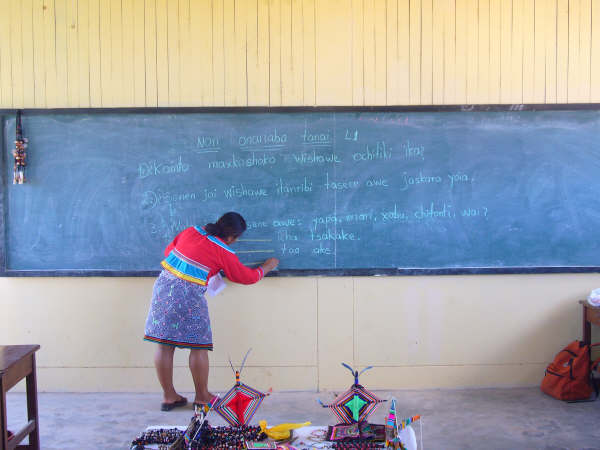 Non onanabo tanai L1
1) Kainto maxkashoko wishawe ochitiki ika?
2) jai wishawe itanribi tasere awe jaskara yoia.
3. awe: yapa, miari, xobu, chitonti, wai?
icha tsakake.
tao ake.